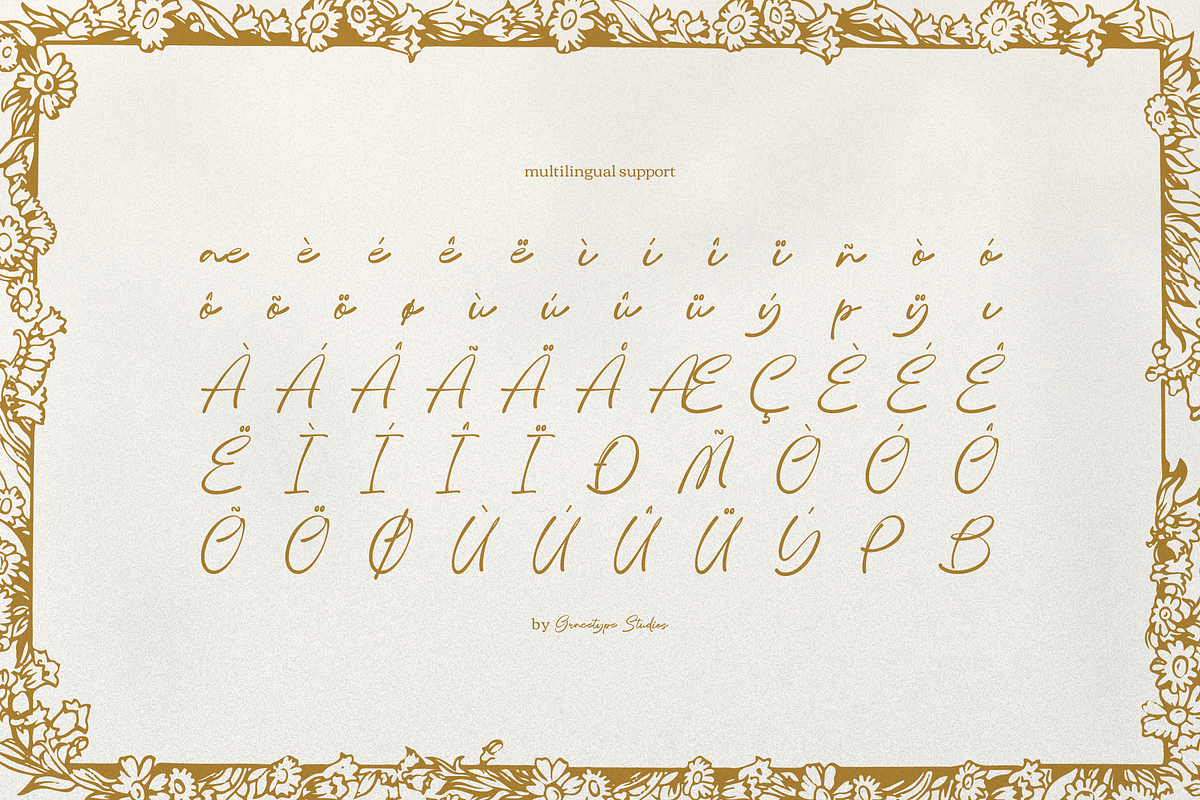 multilingual support
æ è é ê ë ì í î ï ñ ò ó
ô õ ö ø ù ú û ü ý þ ÿ ı
À Á Â Ã Ä Å Æ Ç È É Ê
Ë Ì Í Î Ï Ð Ñ Ò Ó Ô
Õ Ö Ø Ù Ú Û Ü Ý P B
by Gracetype Studios